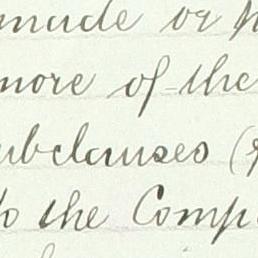 made or
more of the
ubclauses
to the Comp